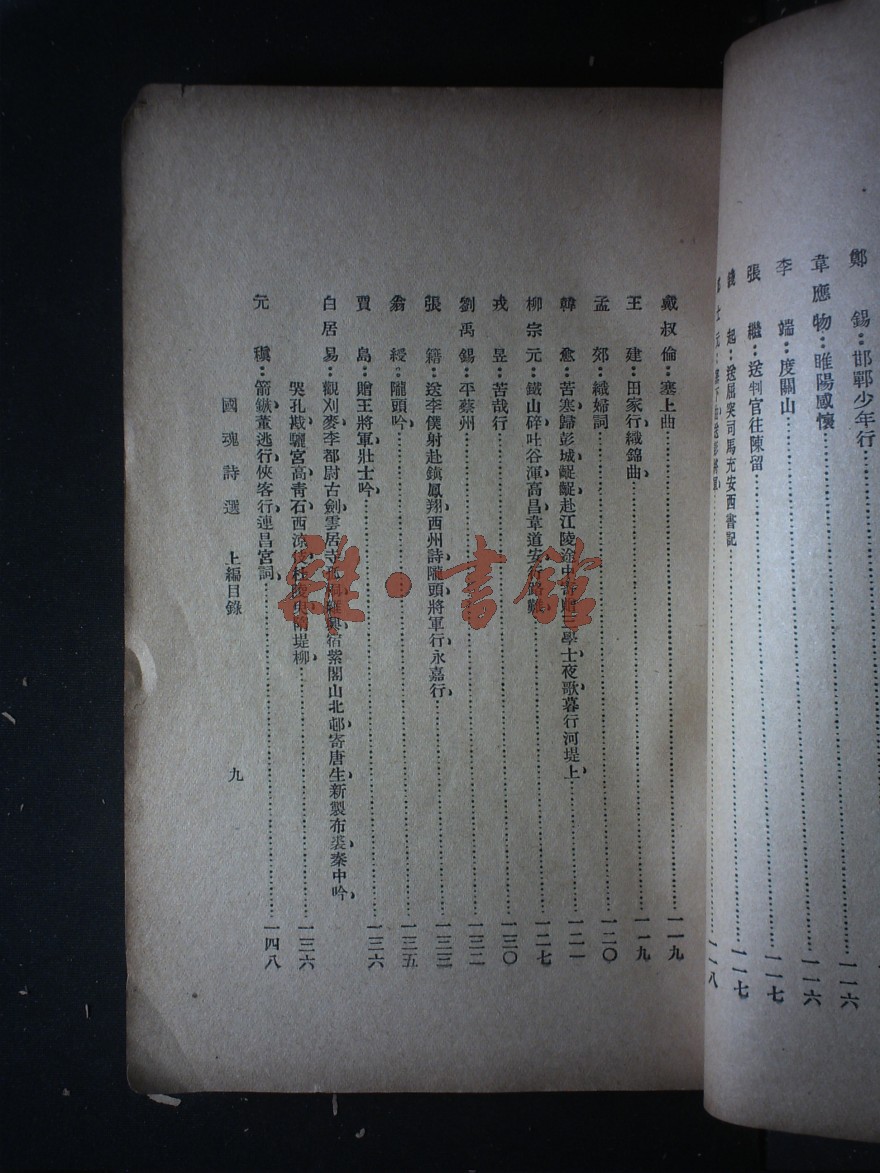 鄭錫：邯鄲少年行……一一六
韋應物：睢陽感懷……一一六
李端：度關山……一一七
張繼：送判官往陳留……一一七
起：送屈突司馬充安西書記……一一七
士元……一一八
戴叔倫：塞上曲……一一九
王建：田家行，織錦曲……一一九
孟郊：織婦詞……一二〇
韓愈：苦寒歸彭城，齪齪，赴江陵途中寄贈三學士，夜歌，暮行河堤上，……一二一
柳宗元：鐵山碎，吐谷渾，高昌，韋道安，行路難，……一二七
戎昱：苦哉行……一三〇
劉禹錫：平蔡州……一三二
張籍：送李僕射赴鎮鳳翔，西州詩，隴頭，將軍行，永嘉行，……一三三
翁綬：隴頭吟……一三五
賈島：贈王將軍，壯士吟，……一三六
白居易：觀刈麥，李都尉古劍，雲居寺孤桐，羅興，宿紫閣山北邨，寄唐生，新製布裘，秦中吟，
哭孔戡，驪宮高，青石，西涼伎，杜陵叟，隋堤柳，……一三六
元稹：箭鏃，董逃行，俠客行，連昌宮詞，……一四八
國魂詩選 上編目錄 九
雜·書館